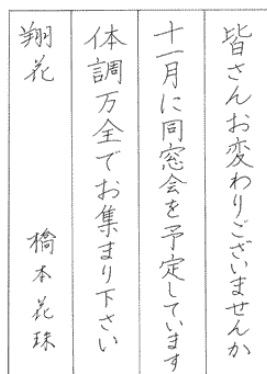 皆さんお変わりございませんか
十一月に同窓会を予定しています
体調万全でお集まり下さい
翔花 橋本花珠